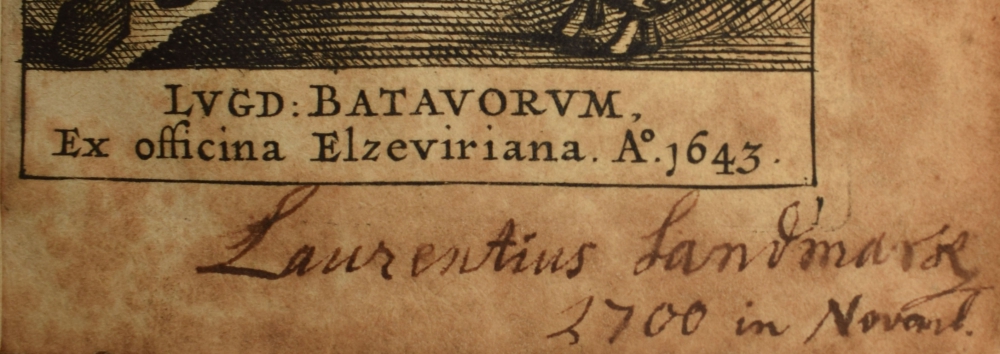 LVGD: BATAVORVM,
Ex officina Elzeviriana. Aº. 1643.
Laurentius Landmark
1700 in